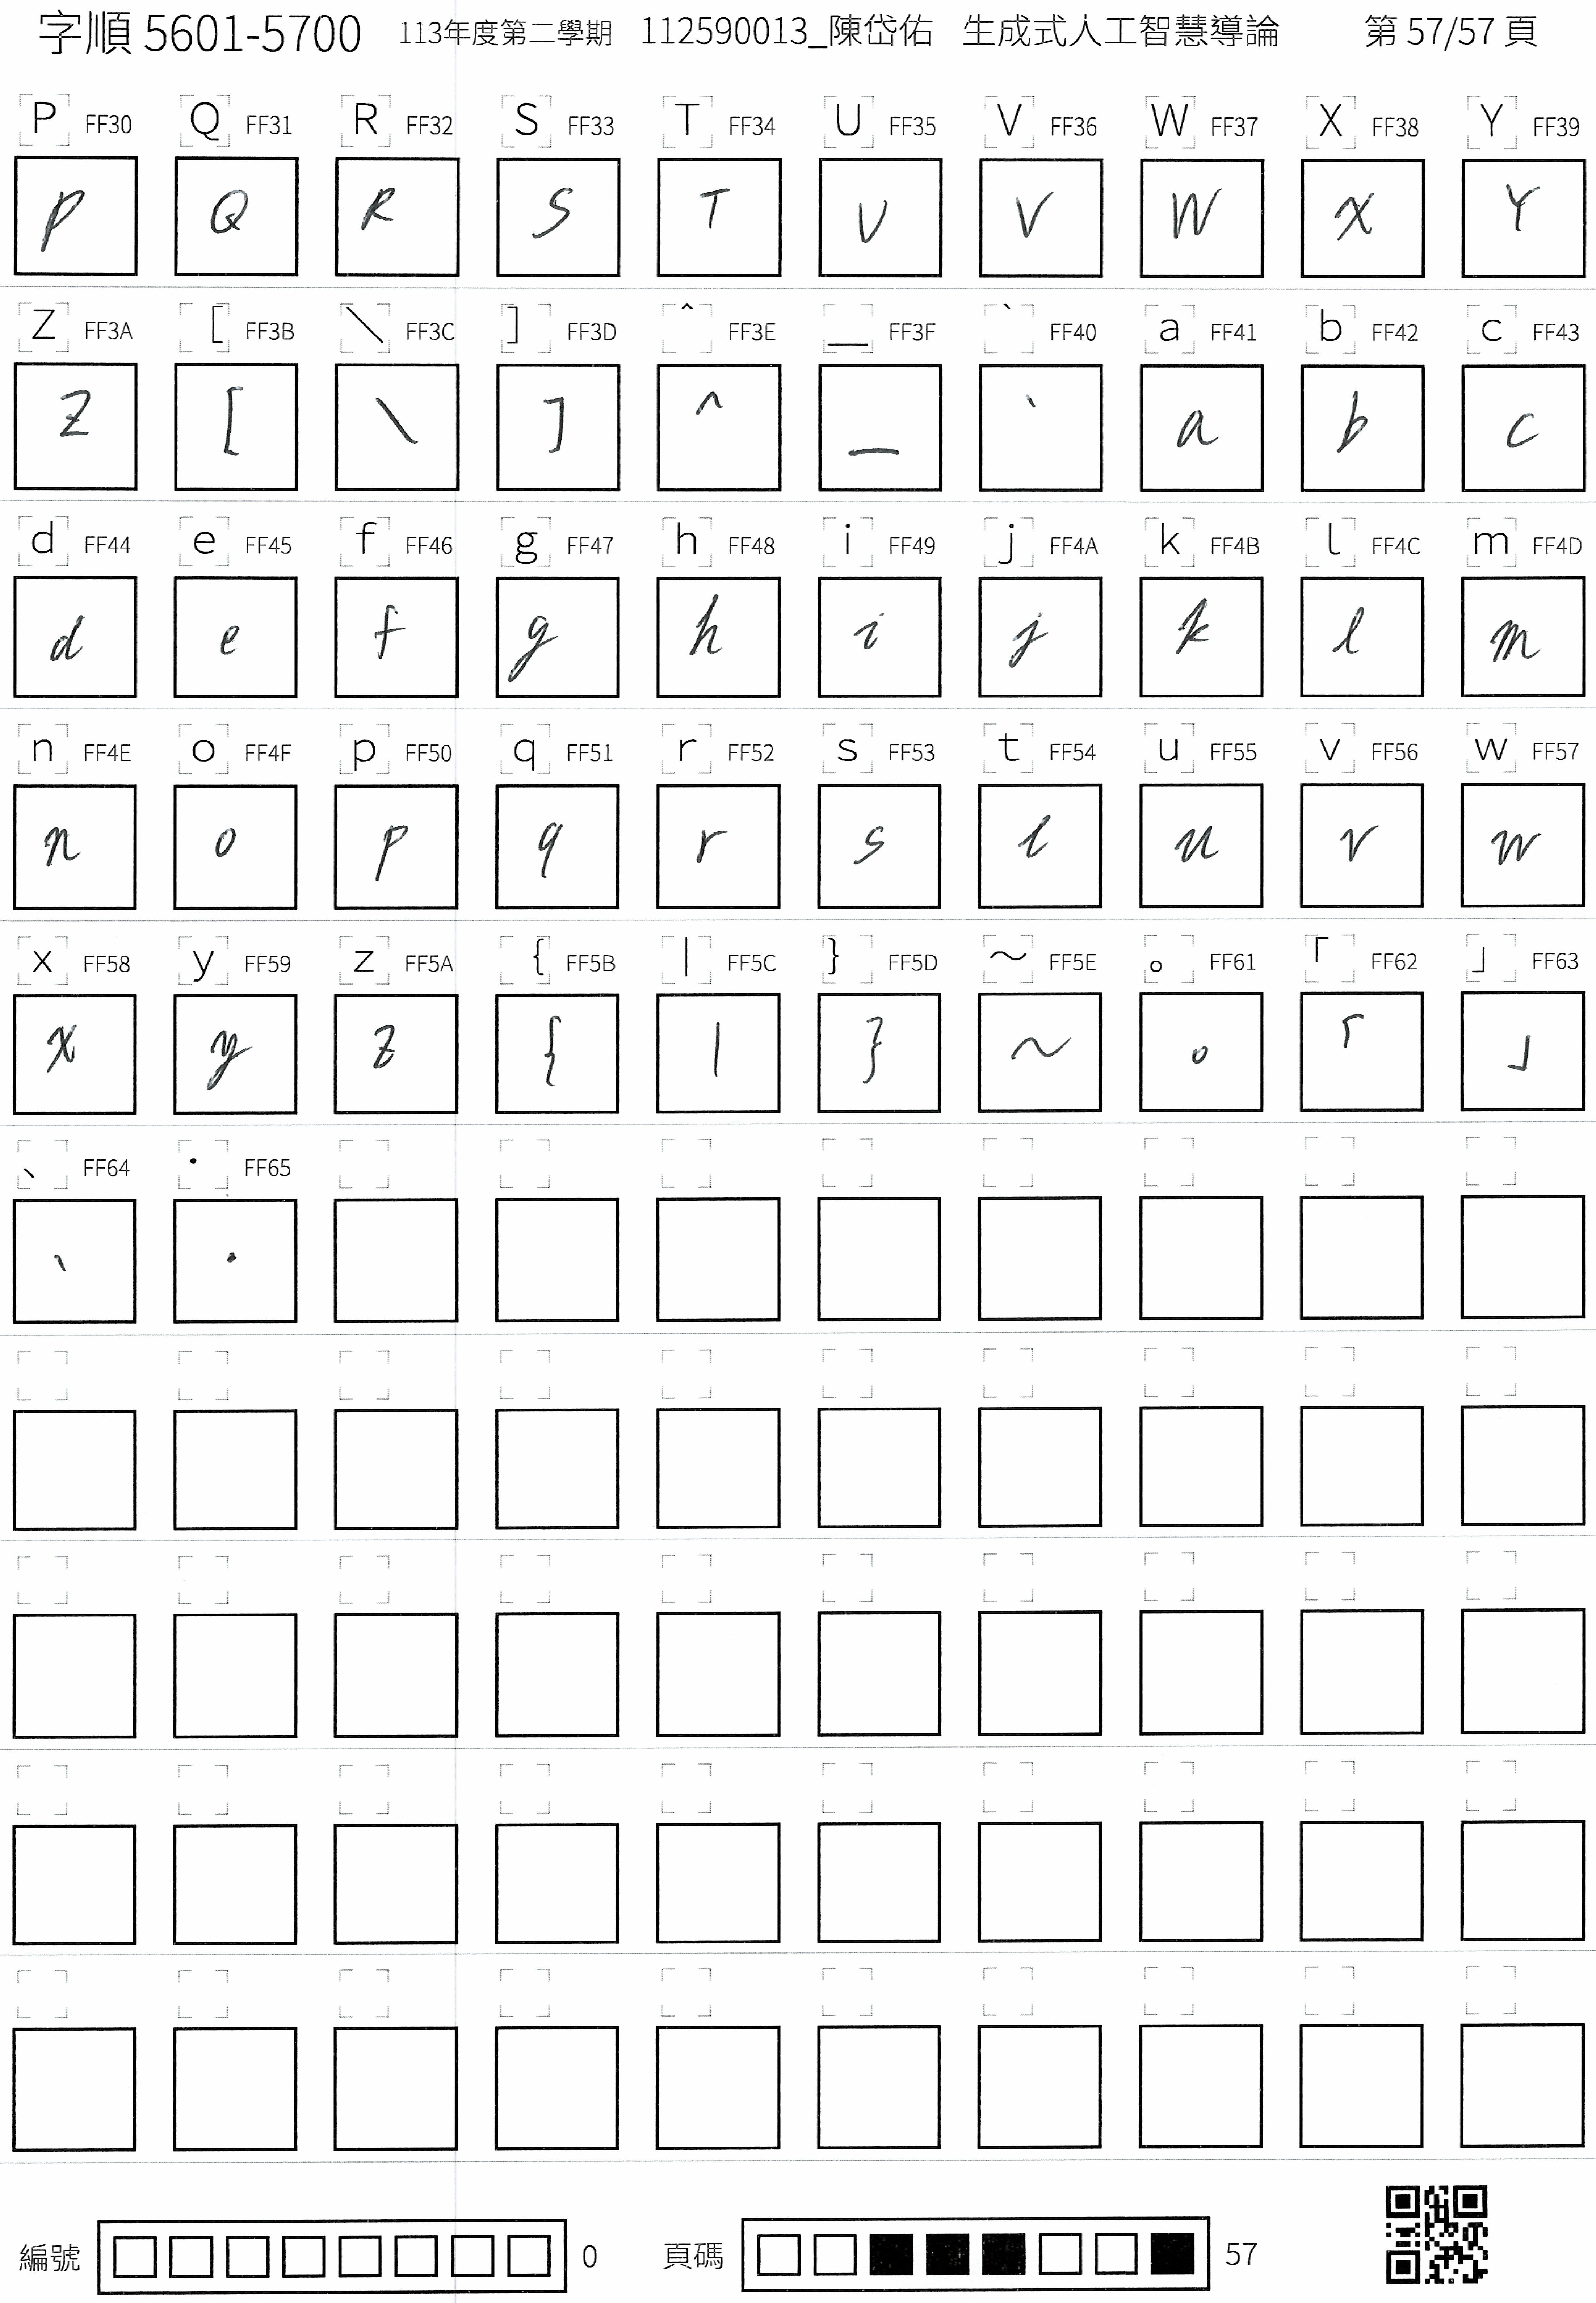 字順 5601-5700 113年度第二學期 112590013_陳岱佑 生成式人工智慧導論 第 57/57 頁
P FF30 Q FF31 R FF32 S FF33 T FF34 U FF35 V FF36 W FF37 X FF38 Y FF39
P Q R S T U V W X Y
Z FF3A [ FF3B \ FF3C ] FF3D ^ FF3E _ FF3F ` FF40 a FF41 b FF42 c FF43
Z [ \ ] ^ _ ` a b c
d FF44 e FF45 f FF46 g FF47 h FF48 i FF49 j FF4A k FF4B l FF4C m FF4D
d e f g h i j k l m
n FF4E o FF4F p FF50 q FF51 r FF52 s FF53 t FF54 u FF55 v FF56 w FF57
n o p q r s t u v w
x FF58 y FF59 z FF5A { FF5B | FF5C } FF5D ~ FF5E 。 FF61 「 FF62 」 FF63
x y z { | } ~ 。 「 」
、 FF64 ・ FF65
、 ・
編號 0 頁碼 57